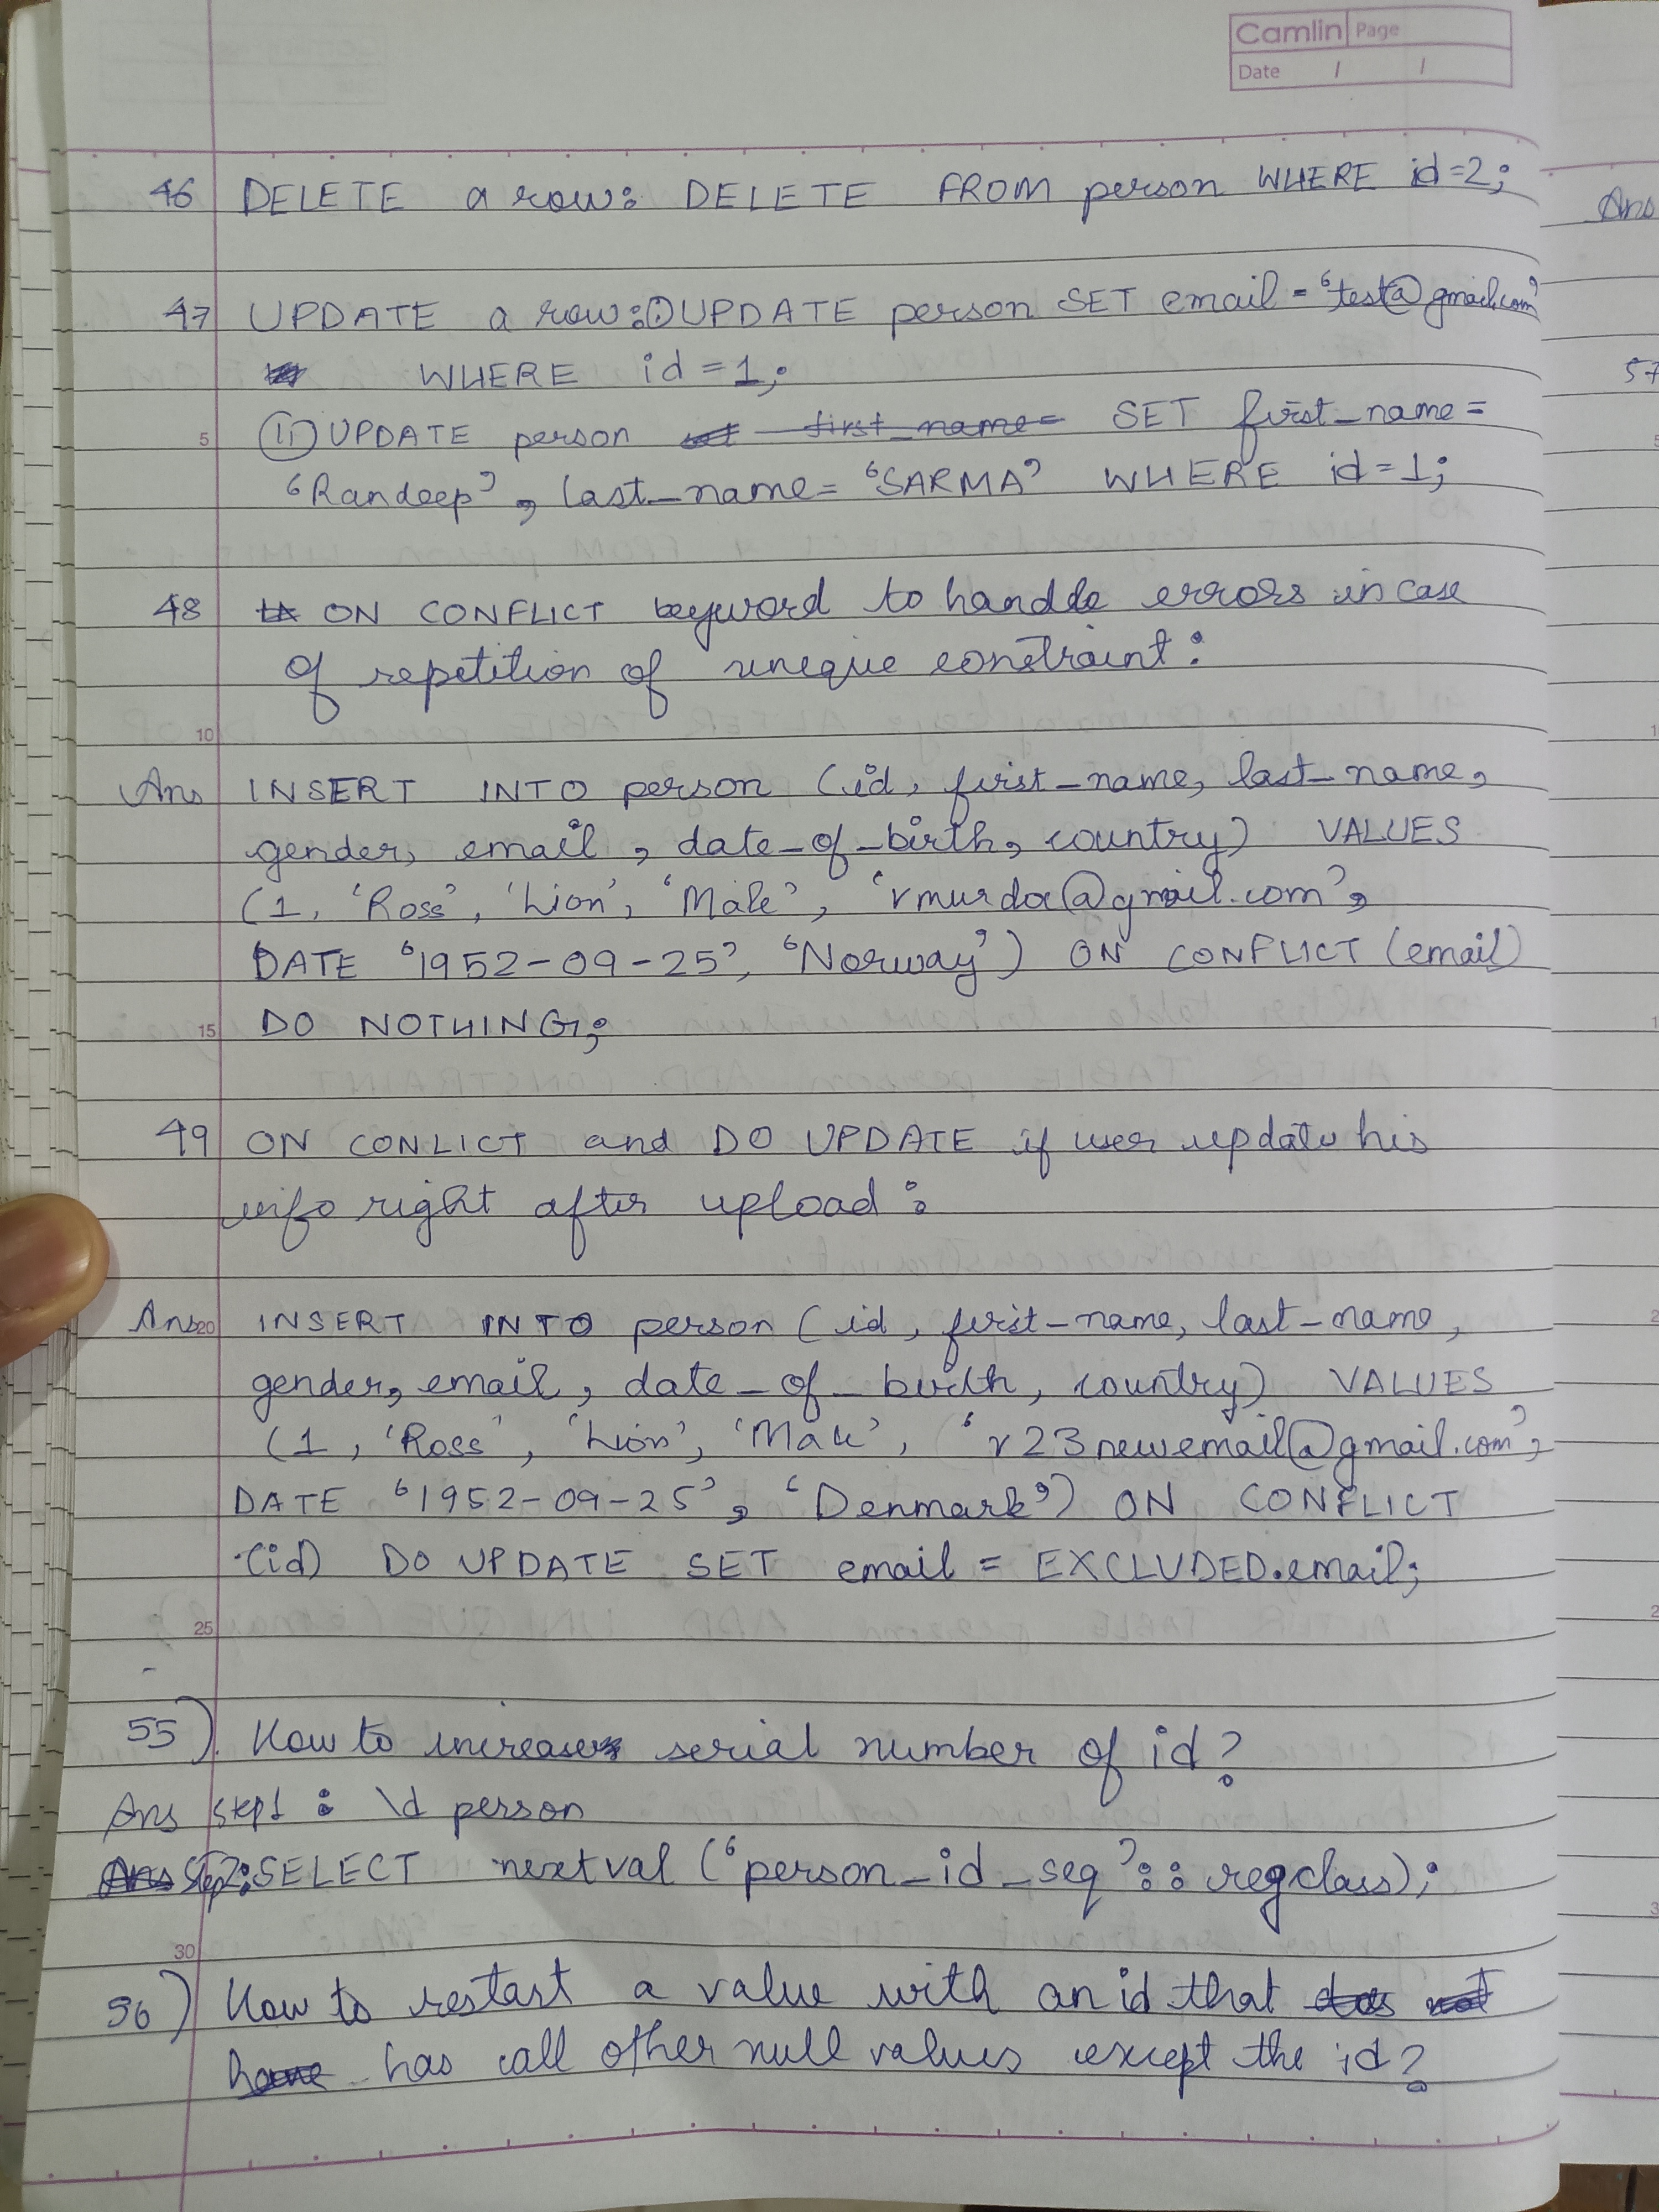 Camlin Page
Date / /
46 DELETE a row: DELETE FROM person WHERE id=2;
Ans
47 UPDATE a row: ① UPDATE person SET email = 'test@gmail.com'
WHERE id = 1;
57
5 ⑪ UPDATE person set first_name= SET first_name=
'Randeep', last_name= 'SARMA' WHERE id=1;
48 ON CONFLICT keyword to handle errors in case
of repetition of unique constraint:
10
Ans INSERT INTO person (id, first_name, last_name,
gender, email, date_of_birth, country) VALUES
(1, 'Ross', 'Lion', 'Male', 'rmurdoc@gmail.com',
DATE '1952-09-25', 'Norway') ON CONFLICT (email)
15 DO NOTHING;
49 ON CONLICT and DO UPDATE if user update his
info right after upload:
Ans 20 INSERT INTO person (id, first_name, last_name,
gender, email, date_of_birth, country) VALUES
(1, 'Ross', 'Lion', 'Male', 'r23newemail@gmail.com',
DATE '1952-09-25', 'Denmark') ON CONFLICT
(id) DO UPDATE SET email = EXCLUDED.email;
25
55) How to increase serial number of id?
Ans step1 : \d person
Ans Step2: SELECT nextval ('person_id_seq'::regclass);
30
56) How to restart a value with an id that does not
have has all other null values except the id?